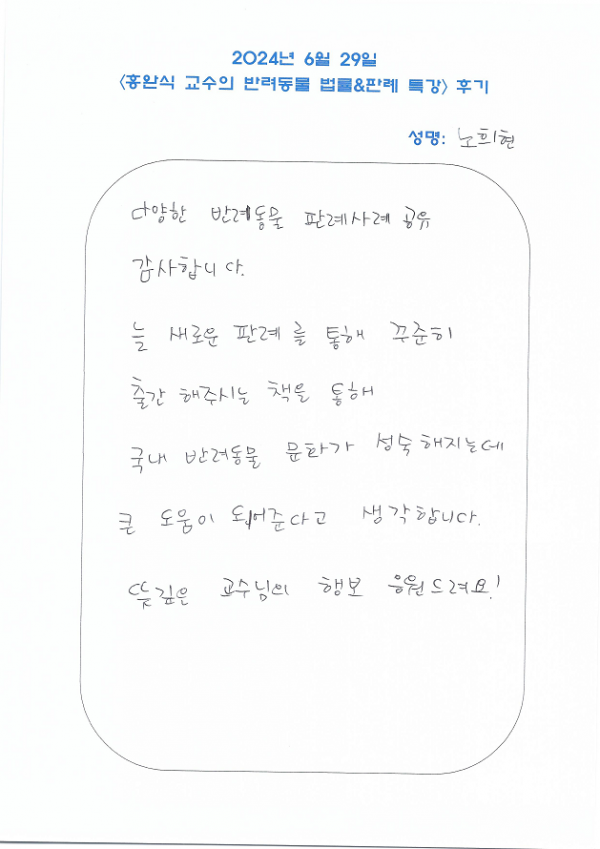 2024년 6월 29일
<홍완식 교수의 반려동물 법률&판례 특강> 후기
성명: 노희현
다양한 반례동물 판례사례 공유
감사합니다.
늘 새로운 판례를 통해 꾸준히
출간 해주시는 책을 통해
국내 반려동물 문화가 성숙해지는데
큰 도움이 되어준다고 생각합니다.
뜻깊은 교수님의 행보 응원드려요!